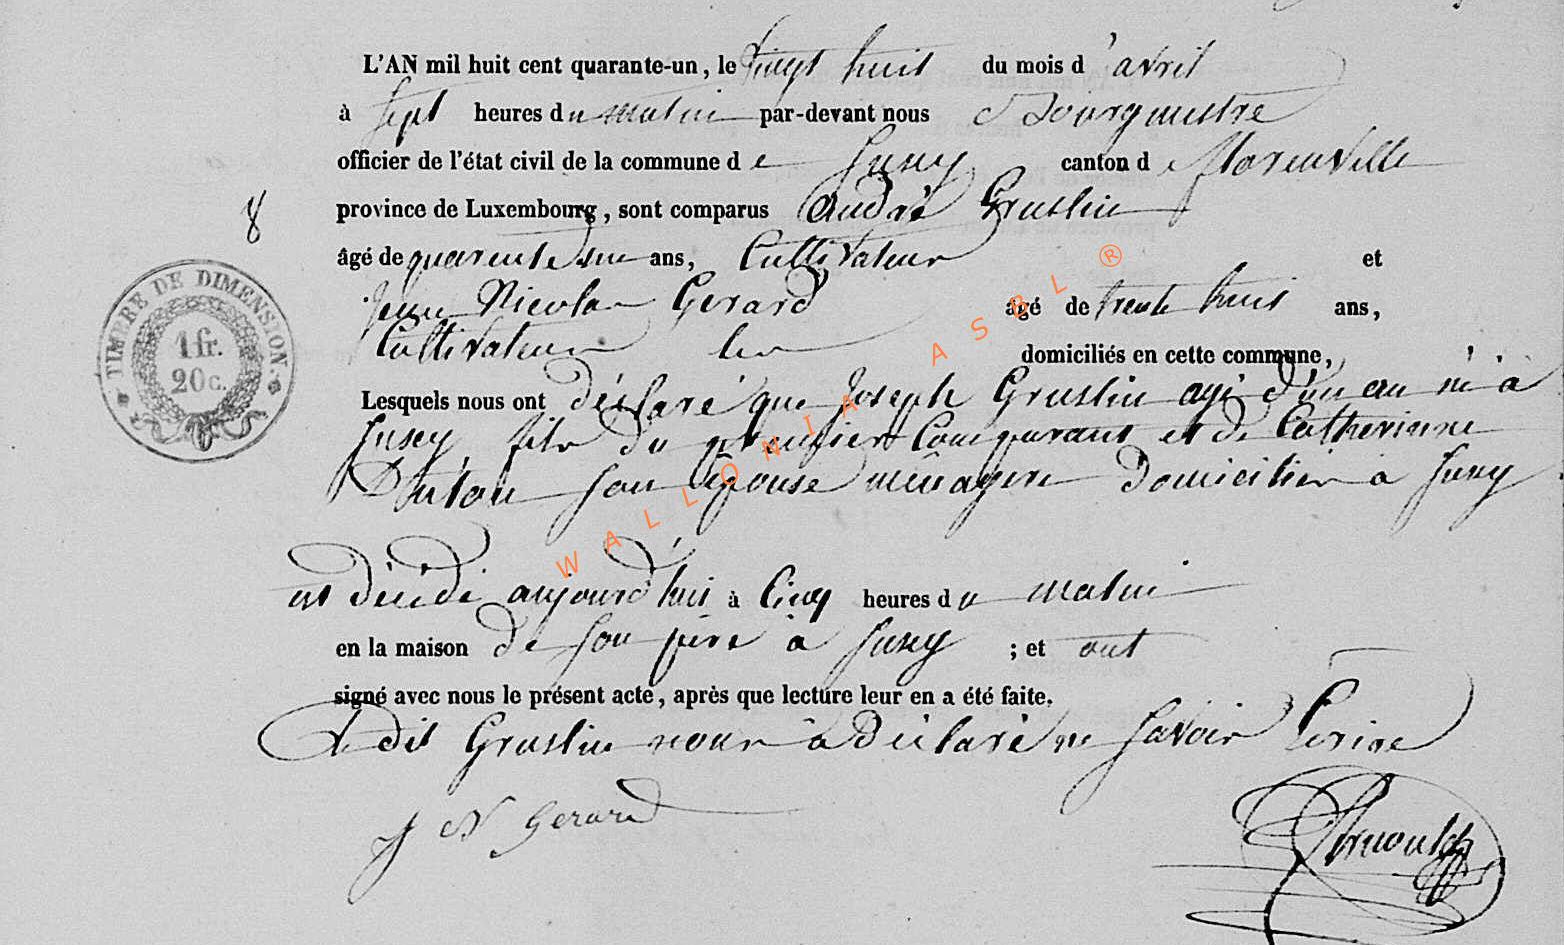 L'AN mil huit cent quarante-un, le vingt huit du mois d'avril
à sept heures du matin par-devant nous Bourgmestre
officier de l'état civil de la commune de Jusey canton de florenville
province de Luxembourg, sont comparus André Gruslin
8
âgé de quarente ans, Cultivateur et
Jean Nicolas Gerard âgé de trente huit ans,
Cultivateur les domiciliés en cette commune,
Lesquels nous ont déclaré que Joseph Gruslin agé d'un an né à
Jusey, fils du premier Comparant et de Catherinne
son épouse ménagere Domiciliés à Jusey
est décédé aujourd'hui à Cinq heures du matin
en la maison de son père à Jusey ; et ont
signé avec nous le présent acte, après que lecture leur en a été faite.
Le dit Gruslin nous à déclaré ne savoir Ecrire
J N Gerard
TIMBRE DE DIMENSION.
1 fr.
20 c.
WALLONIA ASBL ®